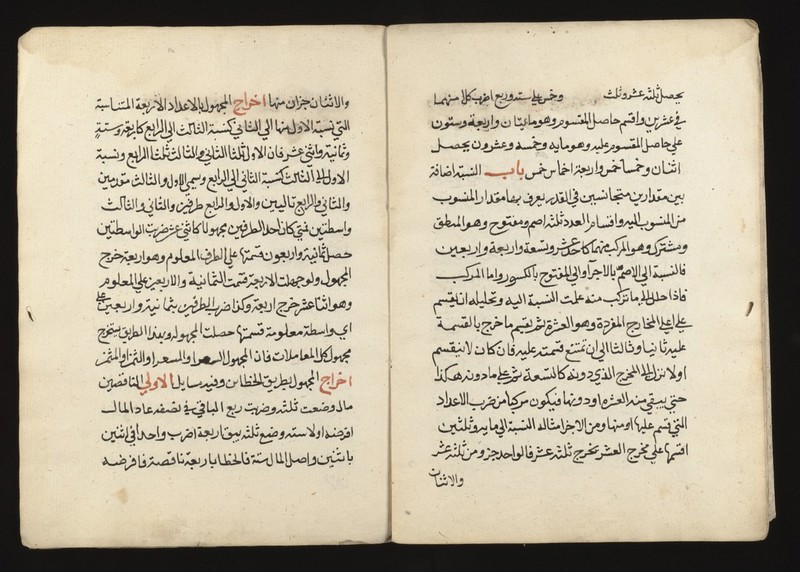 يحصل ثلثه عشر وثلث وخمس على ستة وربع اضرب كلا منهما
في عشرين واقسم حاصل المقسوم وهو مايتان واربعة وستون
على حاصل المقسوم عليه وهو مايه وخمسه وعشرون يحصل
اثنان وخمسا خمس واربعة اخماس خمس باب النسبة اضافة
بين مقدارين متجانسين في القدر يعرف بها مقدار المنسوب
من المنسوب اليه واقسام العدد ثلثة اصم ومفتوح وهو المنطق
ومشترك وهو المركب منهما كاحد عشر وتسعة واربعة واربعين
فالنسبة الى الاصم بالاجزا والى المفتوح بالكسور واما المركب
فاذا حل الى ما تركب منه علمت النسبة اليه وتحليله ان يقسم
على اعلى المخارج المفردة وهو العشرة ثم يقسم ما خرج بالقسمة
عليه ثانيا وثالثا الى ان تمتنع قسمته عليه فان كان لا ينقسم
اولا نزل الى المخرج الذي دونه كالتسعة ثم على ما دونه هكذا
حتى يبقى منه العشره او دونها فيكون مركبا من ضرب الاعداد
التي قسم عليها او منها ومن الاجزا مثاله النسبة الى مايه وثلثين
اقسمها على مخرج العشر يخرج ثلثة عشر فالواحد جزو من ثلثة عشر
والاثنان
والاثنان جزان منها اخراج المجهول بالاعداد الاربعة المتناسبة
التي نسبة الاول منها الى الثاني كنسبة الثالث الى الرابع كاربعة وستة
وثمانية واثني عشر فان الاول ثلثا الثاني والثالث ثلثا الرابع ونسبة
الاول الى الثالث كنسبة الثاني الى الرابع وسمي الاول والثالث مقدمين
والثاني والرابع تاليين والاول والرابع طرفين والثاني والثالث
واسطتين فمتى كان احد الطرفين مجهولا كاثني عشر ضربت الواسطتين
حصل ثمانية واربعون قسمتها على الطرف المعلوم وهو اربعة خرج
المجهول ولو جهلت الاربعة قسمت الثمانية والاربعين على المعلوم
وهو اثنا عشر خرج اربعة وكذا ضرب الطرفين بثمانية واربعين على
اي واسطة معلومة قسمتها حصلت المجهولة وبهذا الطريق يستخرج
مجهول كل المعاملات فان المجهول السعر او المسعر او الثمن او المثمن
اخراج المجهول بطريق الخطاين وفيه مسايل الاولى الناقصين
مال وضعت ثلثه وضربت ربع الباقي في نصفه عاد المال
افرضه اولا سته وضع ثلثه يبق اربعة اضرب واحدا في اثنين
باثنين واصل المال ستة فالخطا باربعة ناقصة فافرضه